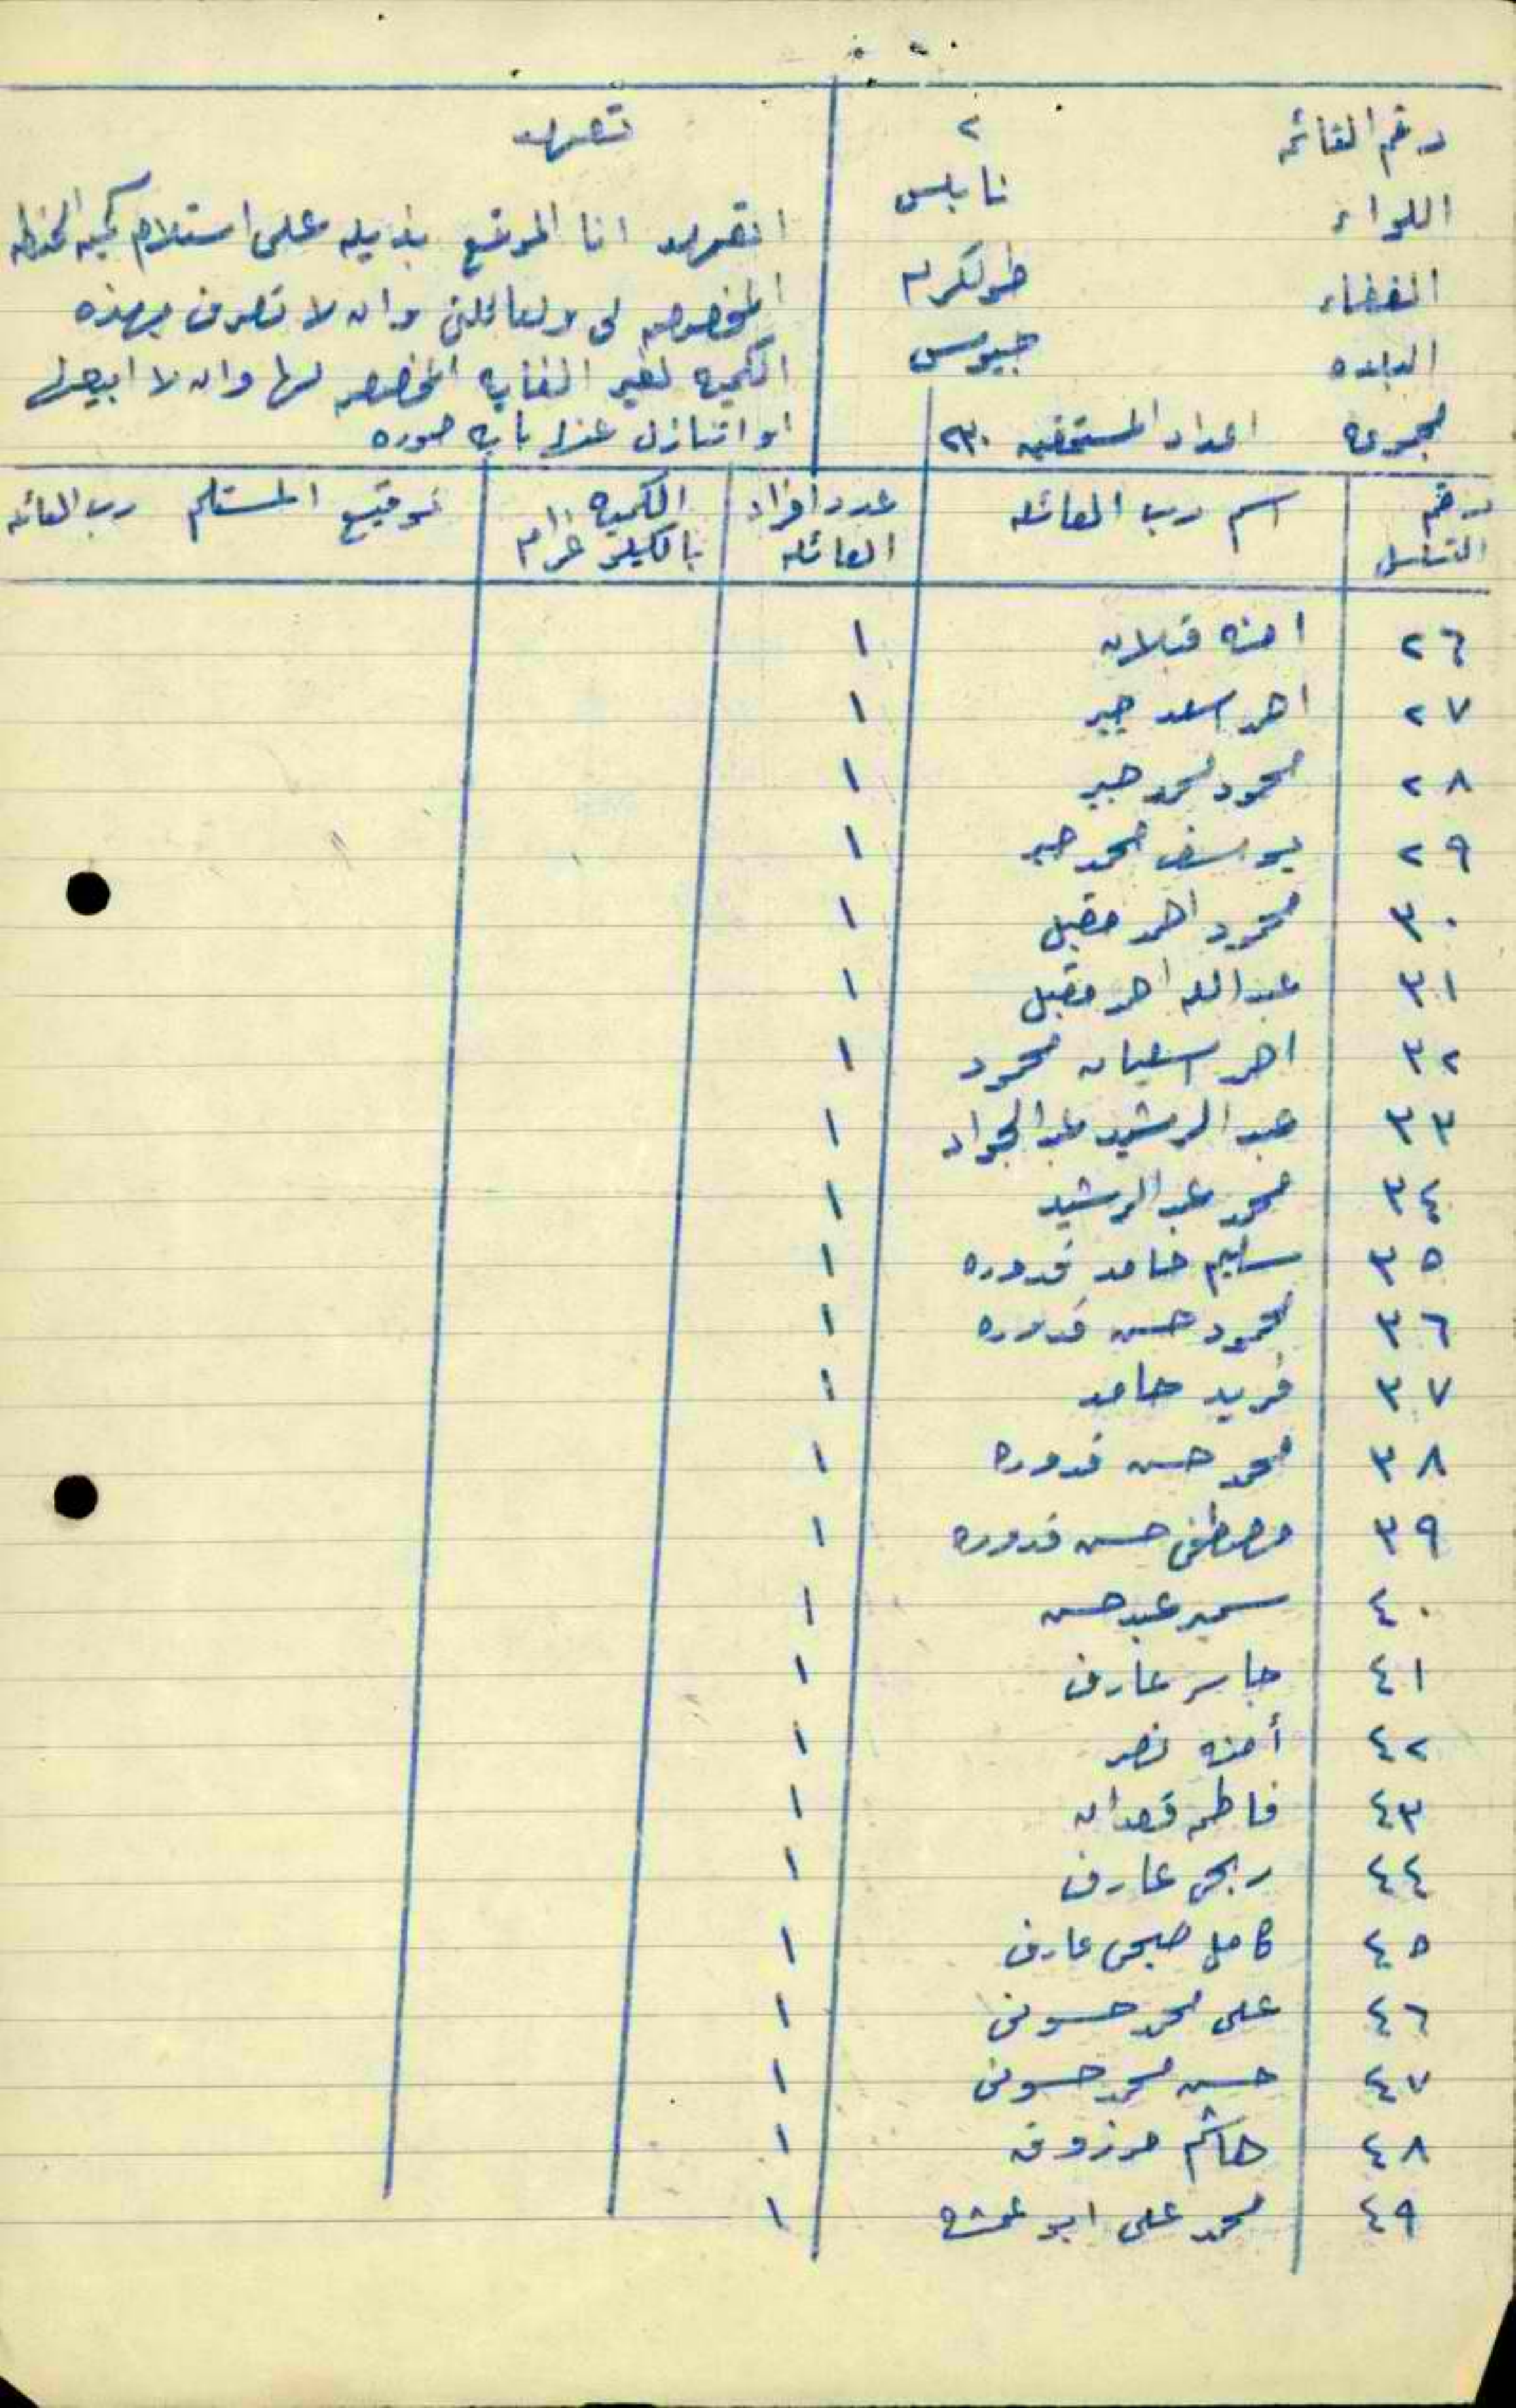 رقم القائمه ٢
اللواء نابلس
القضاء طولكرم
البلده جيوس
مجموع اعداد المستحقين ٢٣٠
تعهد
اتعهد انا الموقع بذيله على استلام كمية الحنطه
المخصصه لي ولعائلتي وان لا تصرف بهذه
الكميه لغير الغايه المخصصه لها وان لا ابيعها
او اتنازل عنها بايه صوره
رقم التسلسل اسم رب العائله عدد افراد العائله الكميه بالكيلو غرام توقيع المستلم رب العائله
٢٦ امنه قبلان ١
٢٧ احمد اسعد جبر ١
٢٨ محمود محمد جبر ١
٢٩ يوسف محمد جبر ١
٣٠ محمود احمد مقبل ١
٣١ عبدالله احمد مقبل ١
٣٢ احمد محمود ١
٣٣ عبد الرشيد عبد الجواد ١
٣٤ محمد عبد الرشيد ١
٣٥ سليم حامد قدوره ١
٣٦ محمود حسن قدوره ١
٣٧ فريد حامد ١
٣٨ محمد حسن قدوره ١
٣٩ مصطفى حسن قدوره ١
٤٠ سمير عبد حسن ١
٤١ جاسر عارف ١
٤٢ أمنه نصر ١
٤٣ فاطمه ١
٤٤ ربحي عارف ١
٤٥ كامل صبحي عارف ١
٤٦ علي محمد حسوني ١
٤٧ حسن محمد حسوني ١
٤٨ هاشم مرزوق ١
٤٩ محمد علي ابو عمشه ١